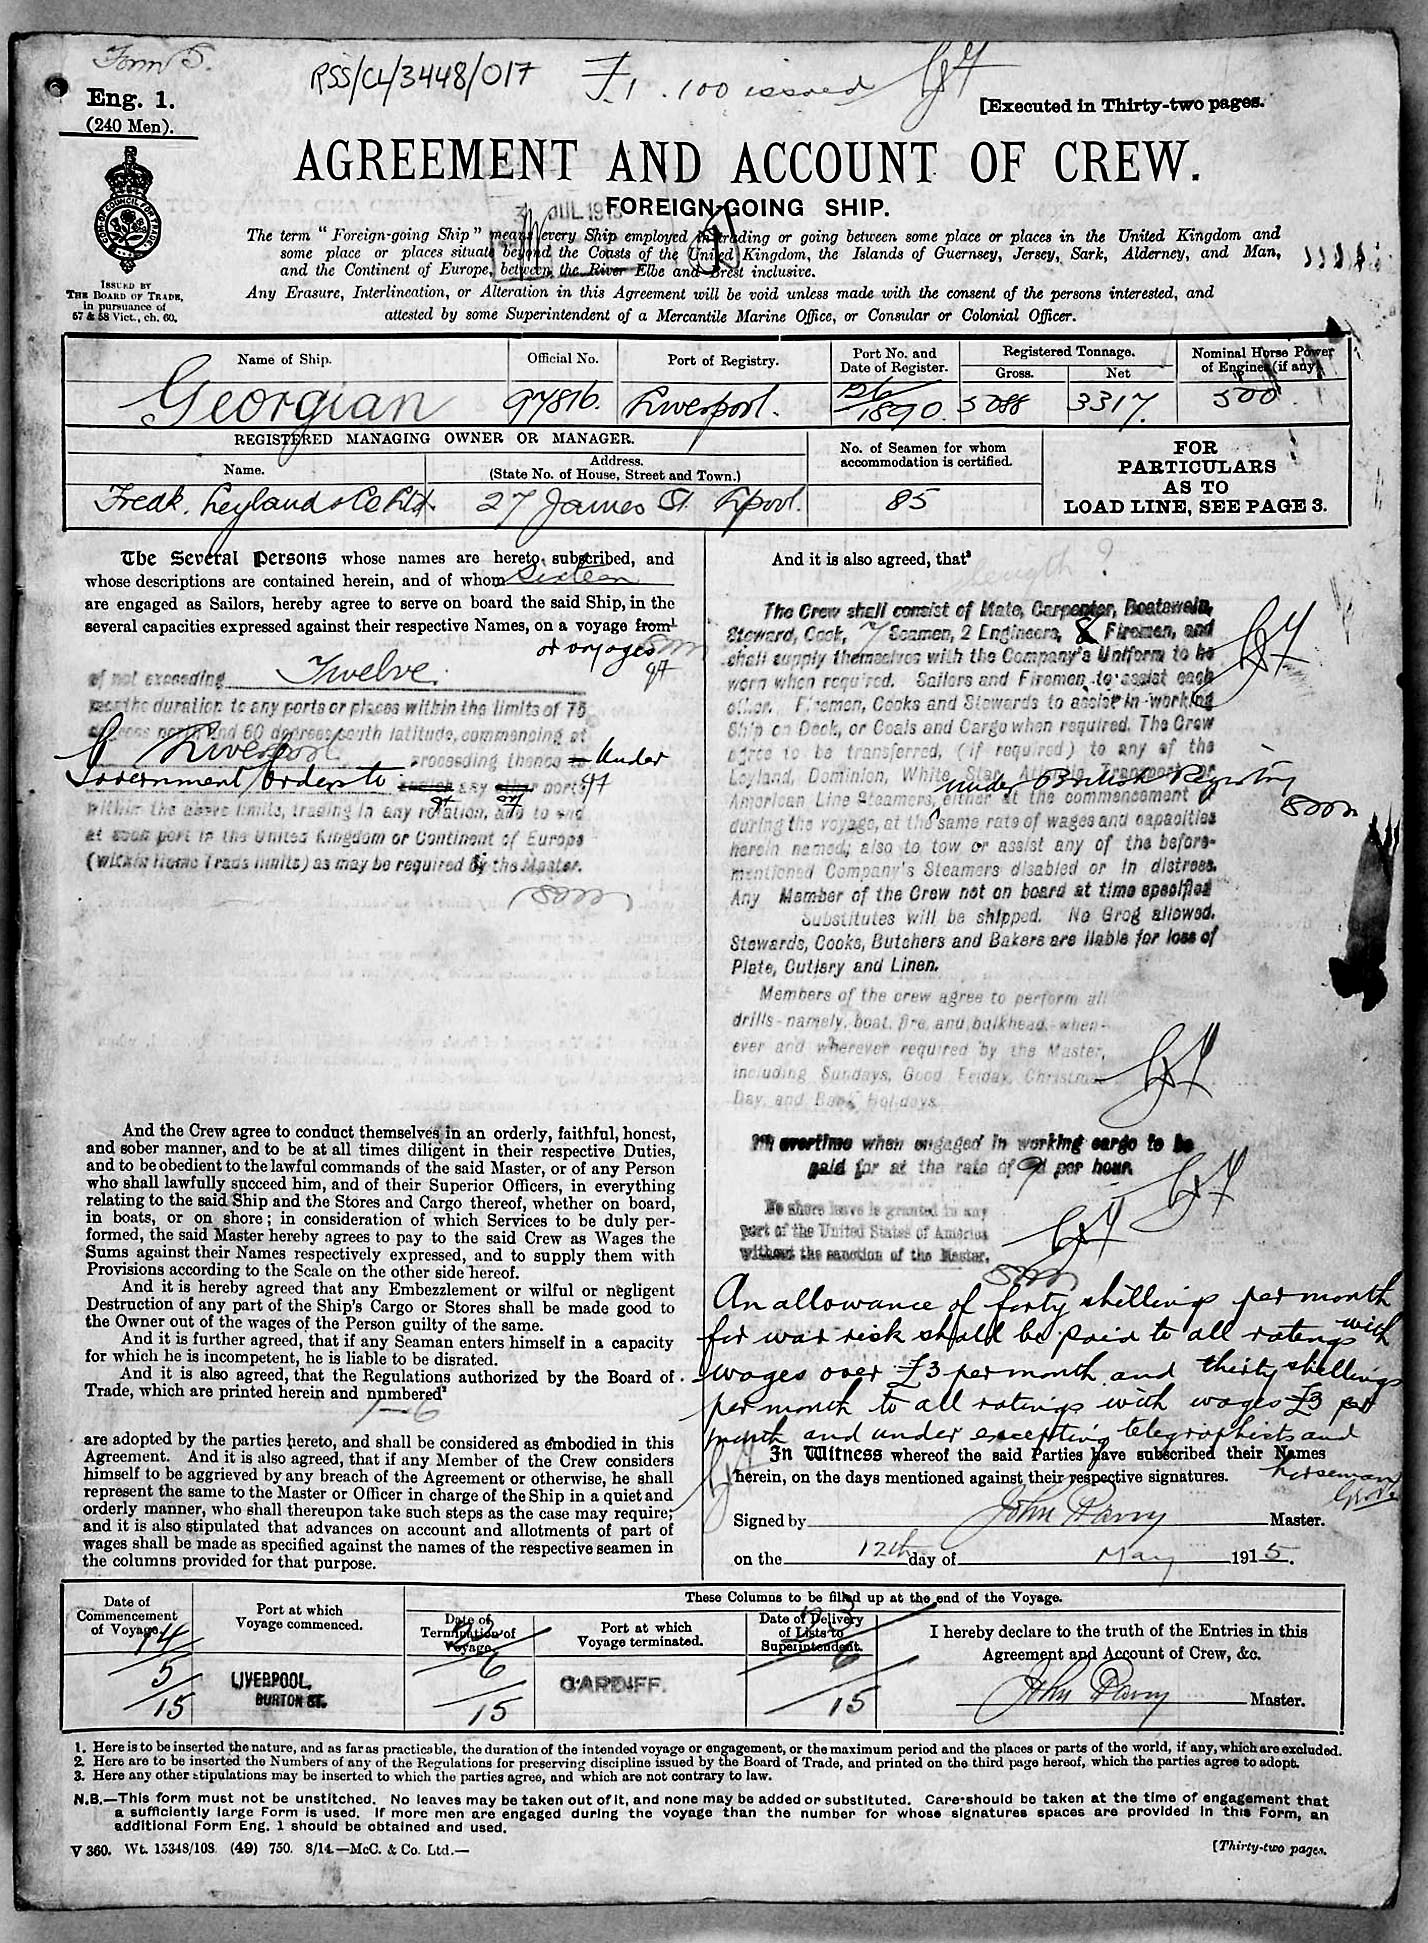 Form 5.
RSS/CL/3448/017
F.1. 100 issued
Eng. 1.
(240 Men).
[Executed in Thirty-two pages.
AGREEMENT AND ACCOUNT OF CREW.
FOREIGN-GOING SHIP.
JUL 191
COM. OF COUNCIL FOR TRADE
ISSUED BY
THE BOARD OF TRADE,
in pursuance of
57 & 58 Vict., ch. 60.
The term "Foreign-going Ship" means every Ship employed in trading or going between some place or places in the United Kingdom and
some place or places situate beyond the Coasts of the United Kingdom, the Islands of Guernsey, Jersey, Sark, Alderney, and Man,
and the Continent of Europe, between the River Elbe and Brest inclusive.
Any Erasure, Interlineation, or Alteration in this Agreement will be void unless made with the consent of the persons interested, and
attested by some Superintendent of a Mercantile Marine Office, or Consular or Colonial Officer.
Name of Ship. Official No. Port of Registry. Port No. and Date of Register. Registered Tonnage. Gross. Net Nominal Horse Power of Engines (if any).
Georgian 97816. Liverpool. 126/1890. 5088 3317. 500.
REGISTERED MANAGING OWNER OR MANAGER.
Name. Address. (State No. of House, Street and Town.)
No. of Seamen for whom accommodation is certified.
FOR PARTICULARS AS TO LOAD LINE, SEE PAGE 3.
Fredk. Leyland & Co Ltd. 27 James St. Lpool. 85
The Several Persons whose names are hereto subscribed, and
whose descriptions are contained herein, and of whom Sixteen
are engaged as Sailors, hereby agree to serve on board the said Ship, in the
several capacities expressed against their respective Names, on a voyage from¹
or voyages
of not exceeding Twelve.
months duration to any ports or places within the limits of 75
degrees north and 60 degrees south latitude, commencing at
Liverpool proceeding thence Under
Government Orders to any ports
within the above limits, trading in any rotation, and to end
at such port in the United Kingdom or Continent of Europe
(within Home Trade limits) as may be required by the Master.
And the Crew agree to conduct themselves in an orderly, faithful, honest,
and sober manner, and to be at all times diligent in their respective Duties,
and to be obedient to the lawful commands of the said Master, or of any Person
who shall lawfully succeed him, and of their Superior Officers, in everything
relating to the said Ship and the Stores and Cargo thereof, whether on board,
in boats, or on shore; in consideration of which Services to be duly per-
formed, the said Master hereby agrees to pay to the said Crew as Wages the
Sums against their Names respectively expressed, and to supply them with
Provisions according to the Scale on the other side hereof.
And it is hereby agreed that any Embezzlement or wilful or negligent
Destruction of any part of the Ship's Cargo or Stores shall be made good to
the Owner out of the wages of the Person guilty of the same.
And it is further agreed, that if any Seaman enters himself in a capacity
for which he is incompetent, he is liable to be disrated.
And it is also agreed, that the Regulations authorized by the Board of
Trade, which are printed herein and numbered²
1-6
are adopted by the parties hereto, and shall be considered as embodied in this
Agreement. And it is also agreed, that if any Member of the Crew considers
himself to be aggrieved by any breach of the Agreement or otherwise, he shall
represent the same to the Master or Officer in charge of the Ship in a quiet and
orderly manner, who shall thereupon take such steps as the case may require;
and it is also stipulated that advances on account and allotments of part of
wages shall be made as specified against the names of the respective seamen in
the columns provided for that purpose.
And it is also agreed, that³
length ?
The Crew shall consist of Mate, Carpenter, Boatswain,
Steward, Cook, 7 Seamen, 2 Engineers, 8 Firemen, and
shall supply themselves with the Company's Uniform to be
worn when required. Sailors and Firemen to assist each
other. Firemen, Cooks and Stewards to assist in working
Ship on Deck, or Coals and Cargo when required. The Crew
agree to be transferred, (if required) to any of the
Leyland, Dominion, White Star, Atlantic Transport or
under British Registry
American Line Steamers, either at the commencement or
during the voyage, at the same rate of wages and capacities
herein named; also to tow or assist any of the before-
mentioned Company's Steamers disabled or in distress.
Any Member of the Crew not on board at time specified
Substitutes will be shipped. No Grog allowed.
Stewards, Cooks, Butchers and Bakers are liable for loss of
Plate, Cutlery and Linen.
Members of the crew agree to perform all
drills - namely, boat, fire, and bulkhead - when-
ever and wherever required by the Master,
including Sundays, Good Friday, Christmas
Day, and Bank Holidays.
overtime when engaged in working cargo to be
paid for at the rate of 9d per hour.
No shore leave is granted in any
port of the United States of America
without the sanction of the Master.
An allowance of forty shillings per month
for war risk shall be paid to all ratings with
wages over £3 per month and thirty shillings
per month to all ratings with wages £3 per
month and under excepting telegraphists and
horseman
In Witness whereof the said Parties have subscribed their Names
herein, on the days mentioned against their respective signatures.
Signed by John Parry Master.
on the 12th day of May 1915.
Date of Commencement of Voyage. Port at which Voyage commenced.
These Columns to be filled up at the end of the Voyage.
Date of Termination of Voyage. Port at which Voyage terminated. Date of Delivery of Lists to Superintendent.
I hereby declare to the truth of the Entries in this
Agreement and Account of Crew, &c.
14/5/15 LIVERPOOL, BURTON ST. /6/15 CARDIFF. 23/6/15
John Parry Master.
1. Here is to be inserted the nature, and as far as practicable, the duration of the intended voyage or engagement, or the maximum period and the places or parts of the world, if any, which are excluded.
2. Here are to be inserted the Numbers of any of the Regulations for preserving discipline issued by the Board of Trade, and printed on the third page hereof, which the parties agree to adopt.
3. Here any other stipulations may be inserted to which the parties agree, and which are not contrary to law.
N.B.—This form must not be unstitched. No leaves may be taken out of it, and none may be added or substituted. Care should be taken at the time of engagement that
a sufficiently large Form is used. If more men are engaged during the voyage than the number for whose signatures spaces are provided in this Form, an
additional Form Eng. 1 should be obtained and used.
V 360. Wt. 15348/108. (49) 750. 8/14.—McC. & Co. Ltd.—
[Thirty-two pages.